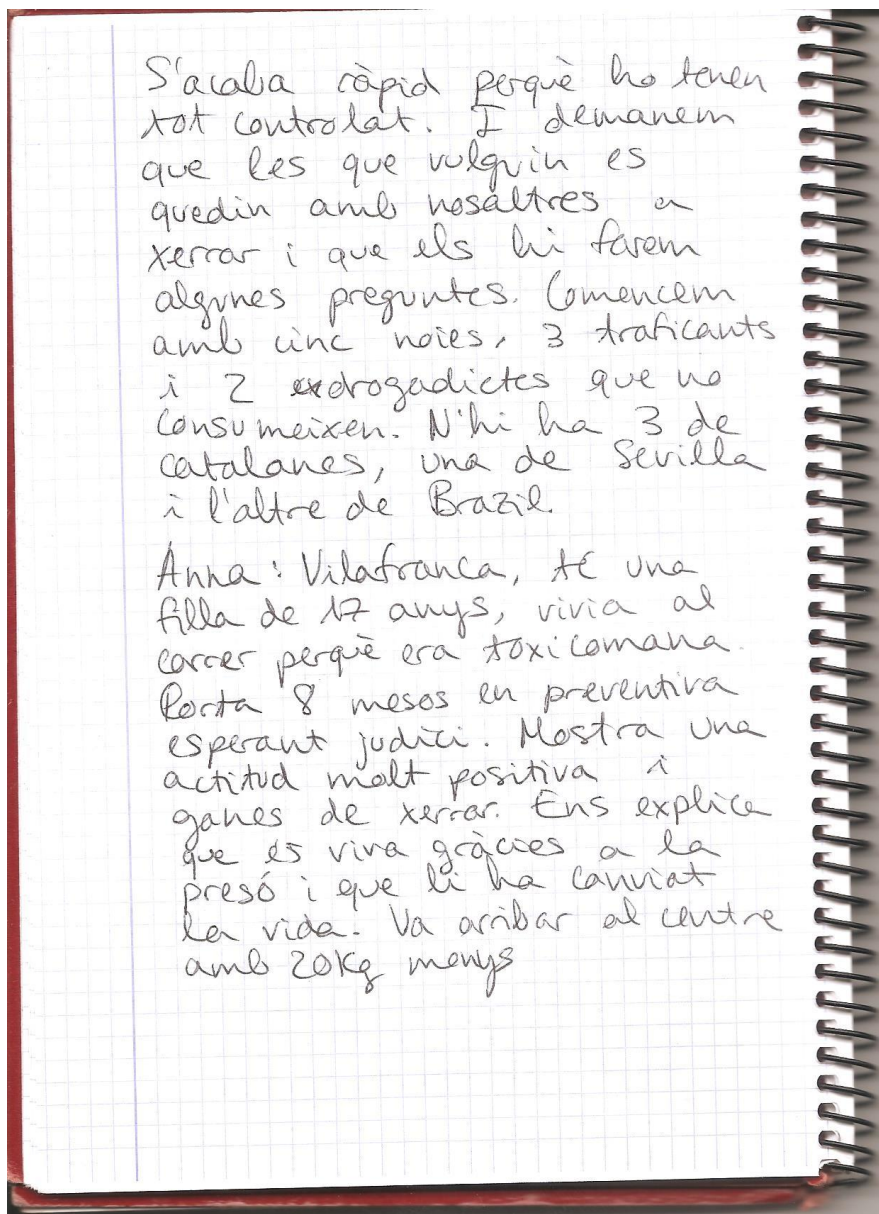 S'acaba ràpid perquè ho tenen
tot controlat. I demanem
que les que vulguin es
quedin amb nosaltres a
xerrar i que els hi farem
algunes preguntes. Comencem
amb cinc noies, 3 traficants
i 2 exdrogadictes que no
consumeixen. N'hi ha 3 de
catalanes, una de Sevilla
i l'altre de Brazil.
Anna: Vilafranca, té una
filla de 17 anys, vivia al
carrer perquè era toxicomana.
Porta 8 mesos en preventiva
esperant judici. Mostra una
actitud molt positiva i
ganes de xerrar. Ens explica
que és viva gràcies a la
presó i que li ha canviat
la vida. Va arribar al centre
amb 20Kg menys